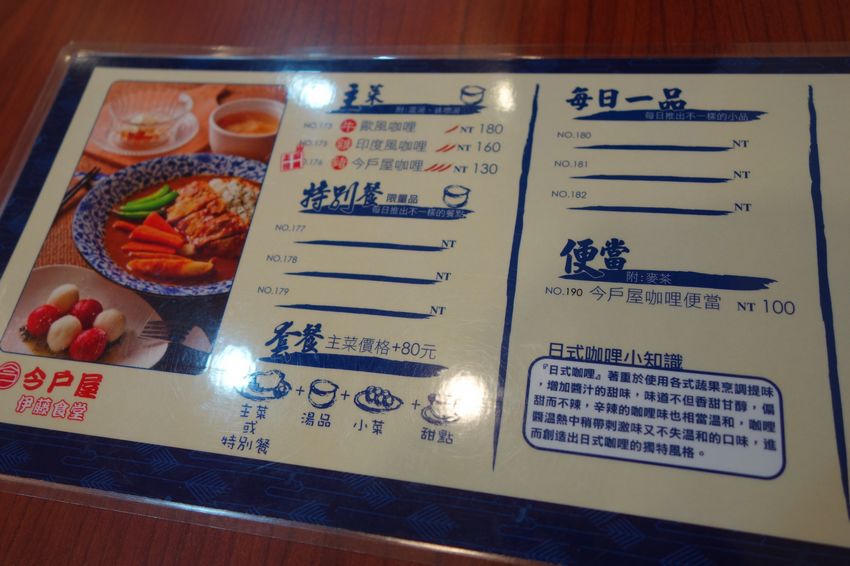 主菜
附:湯、
NO.173 牛 歐風咖哩 NT 180
NO.175 雞 印度風咖哩 NT 160
NO.176 豬 今戶屋咖哩 NT 130
特別餐 限量品
每日推出不一樣的餐點
NO.177 NT
NO.178 NT
NO.179 NT
套餐 主菜價格+80元
主菜或特別餐 + 湯品 + 小菜 + 甜點
今戶屋
伊藤食堂
每日一品
每日推出不一樣的小品
NO.180 NT
NO.181 NT
NO.182 NT
便當
附:麥茶
NO.190 今戶屋咖哩便當 NT 100
日式咖哩小知識
『日式咖哩』著重於使用各式蔬果烹調提味
，增加醬汁的甜味，味道不但香甜甘醇，偏
甜而不辣，辛辣的咖哩味也相當溫和，咖哩
醬溫熱中稍帶刺激味又不失溫和的口味，進
而創造出日式咖哩的獨特風格。